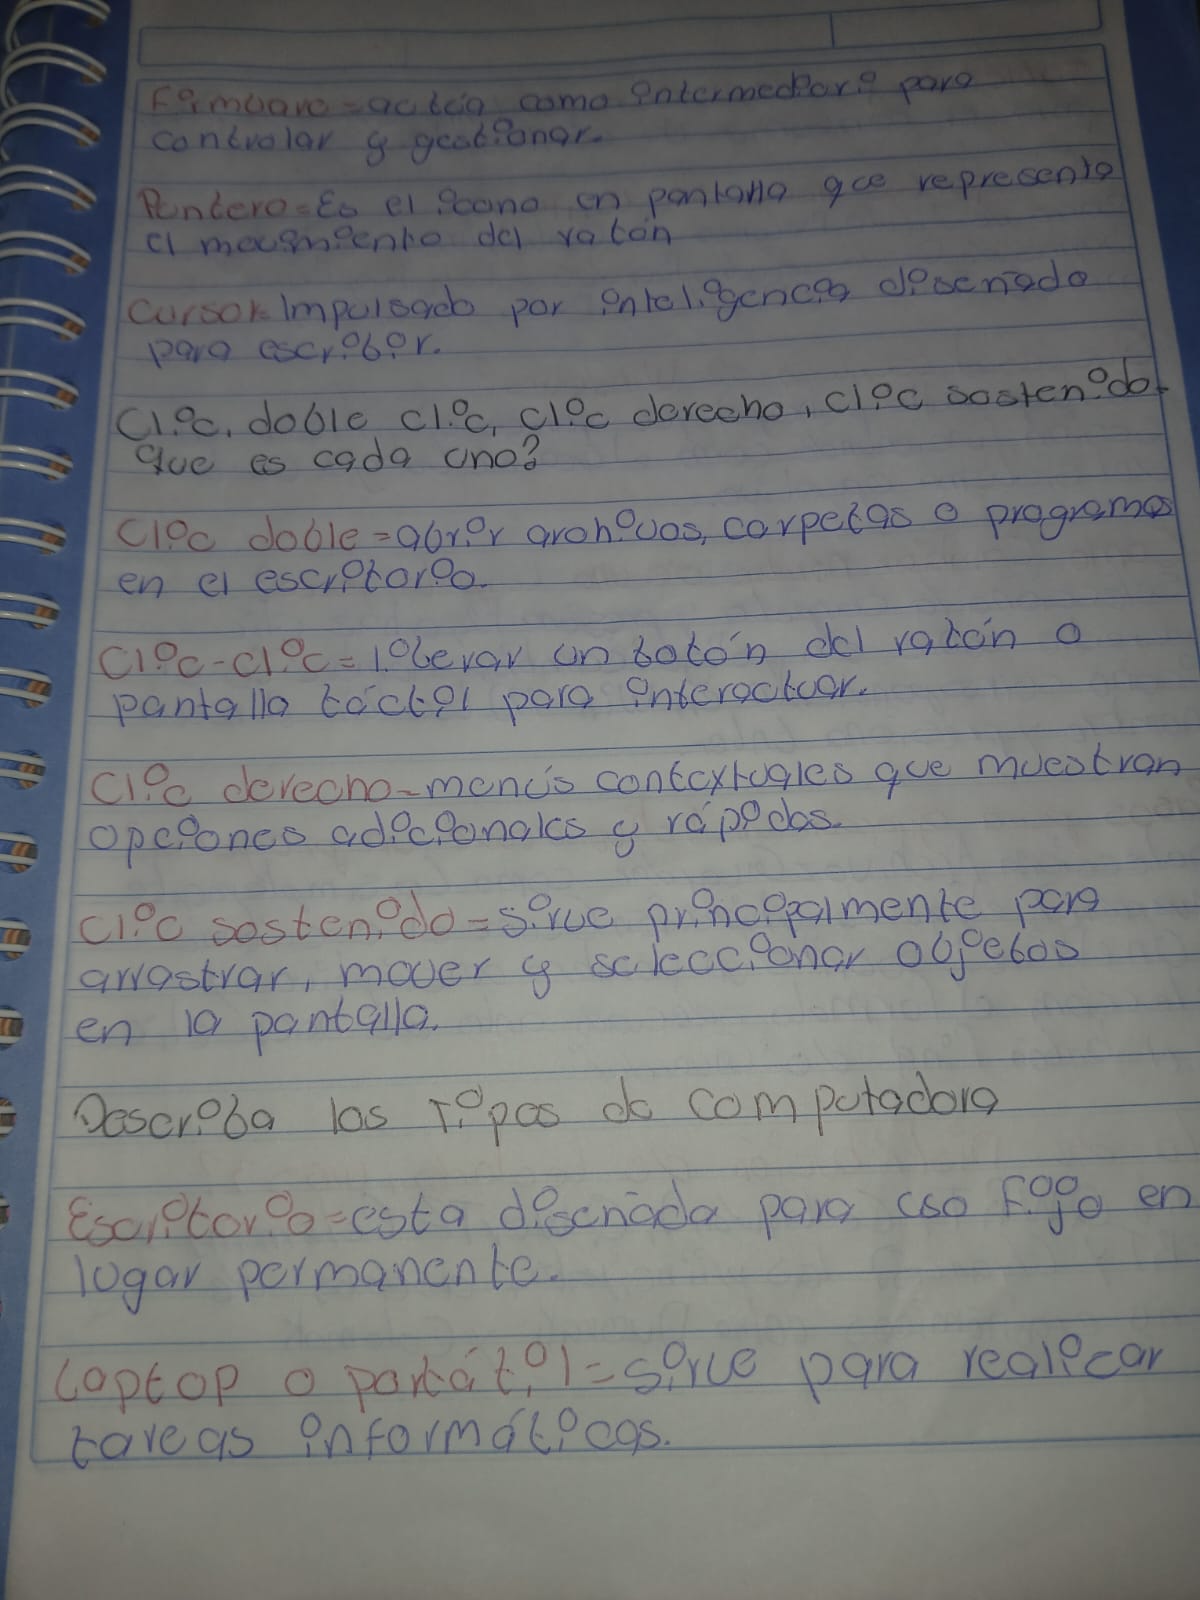 Firmware = actúa como intermediario para
controlar y gestionar.
Puntero = Es el ícono en pantalla que representa
el movimiento del ratón
Cursor = Impulsado por inteligencia diseñado
para escribir.
Clic, doble clic, clic derecho, clic sostenido.
que es cada uno?
Clic doble = abrir archivos, carpetas o programas
en el escritorio.
Clic-clic = liberar un botón del ratón o
pantalla táctil para interactuar.
Clic derecho = menús contextuales que muestran
opciones adicionales y rápidas.
Clic sostenido = sirve principalmente para
arrastrar, mover y seleccionar objetos
en la pantalla.
Describa los Tipos de computadora
Escritorio = esta diseñada para uso Fijo en
lugar permanente.
Laptop o portátil = sirve para realicar
tareas informáticas.